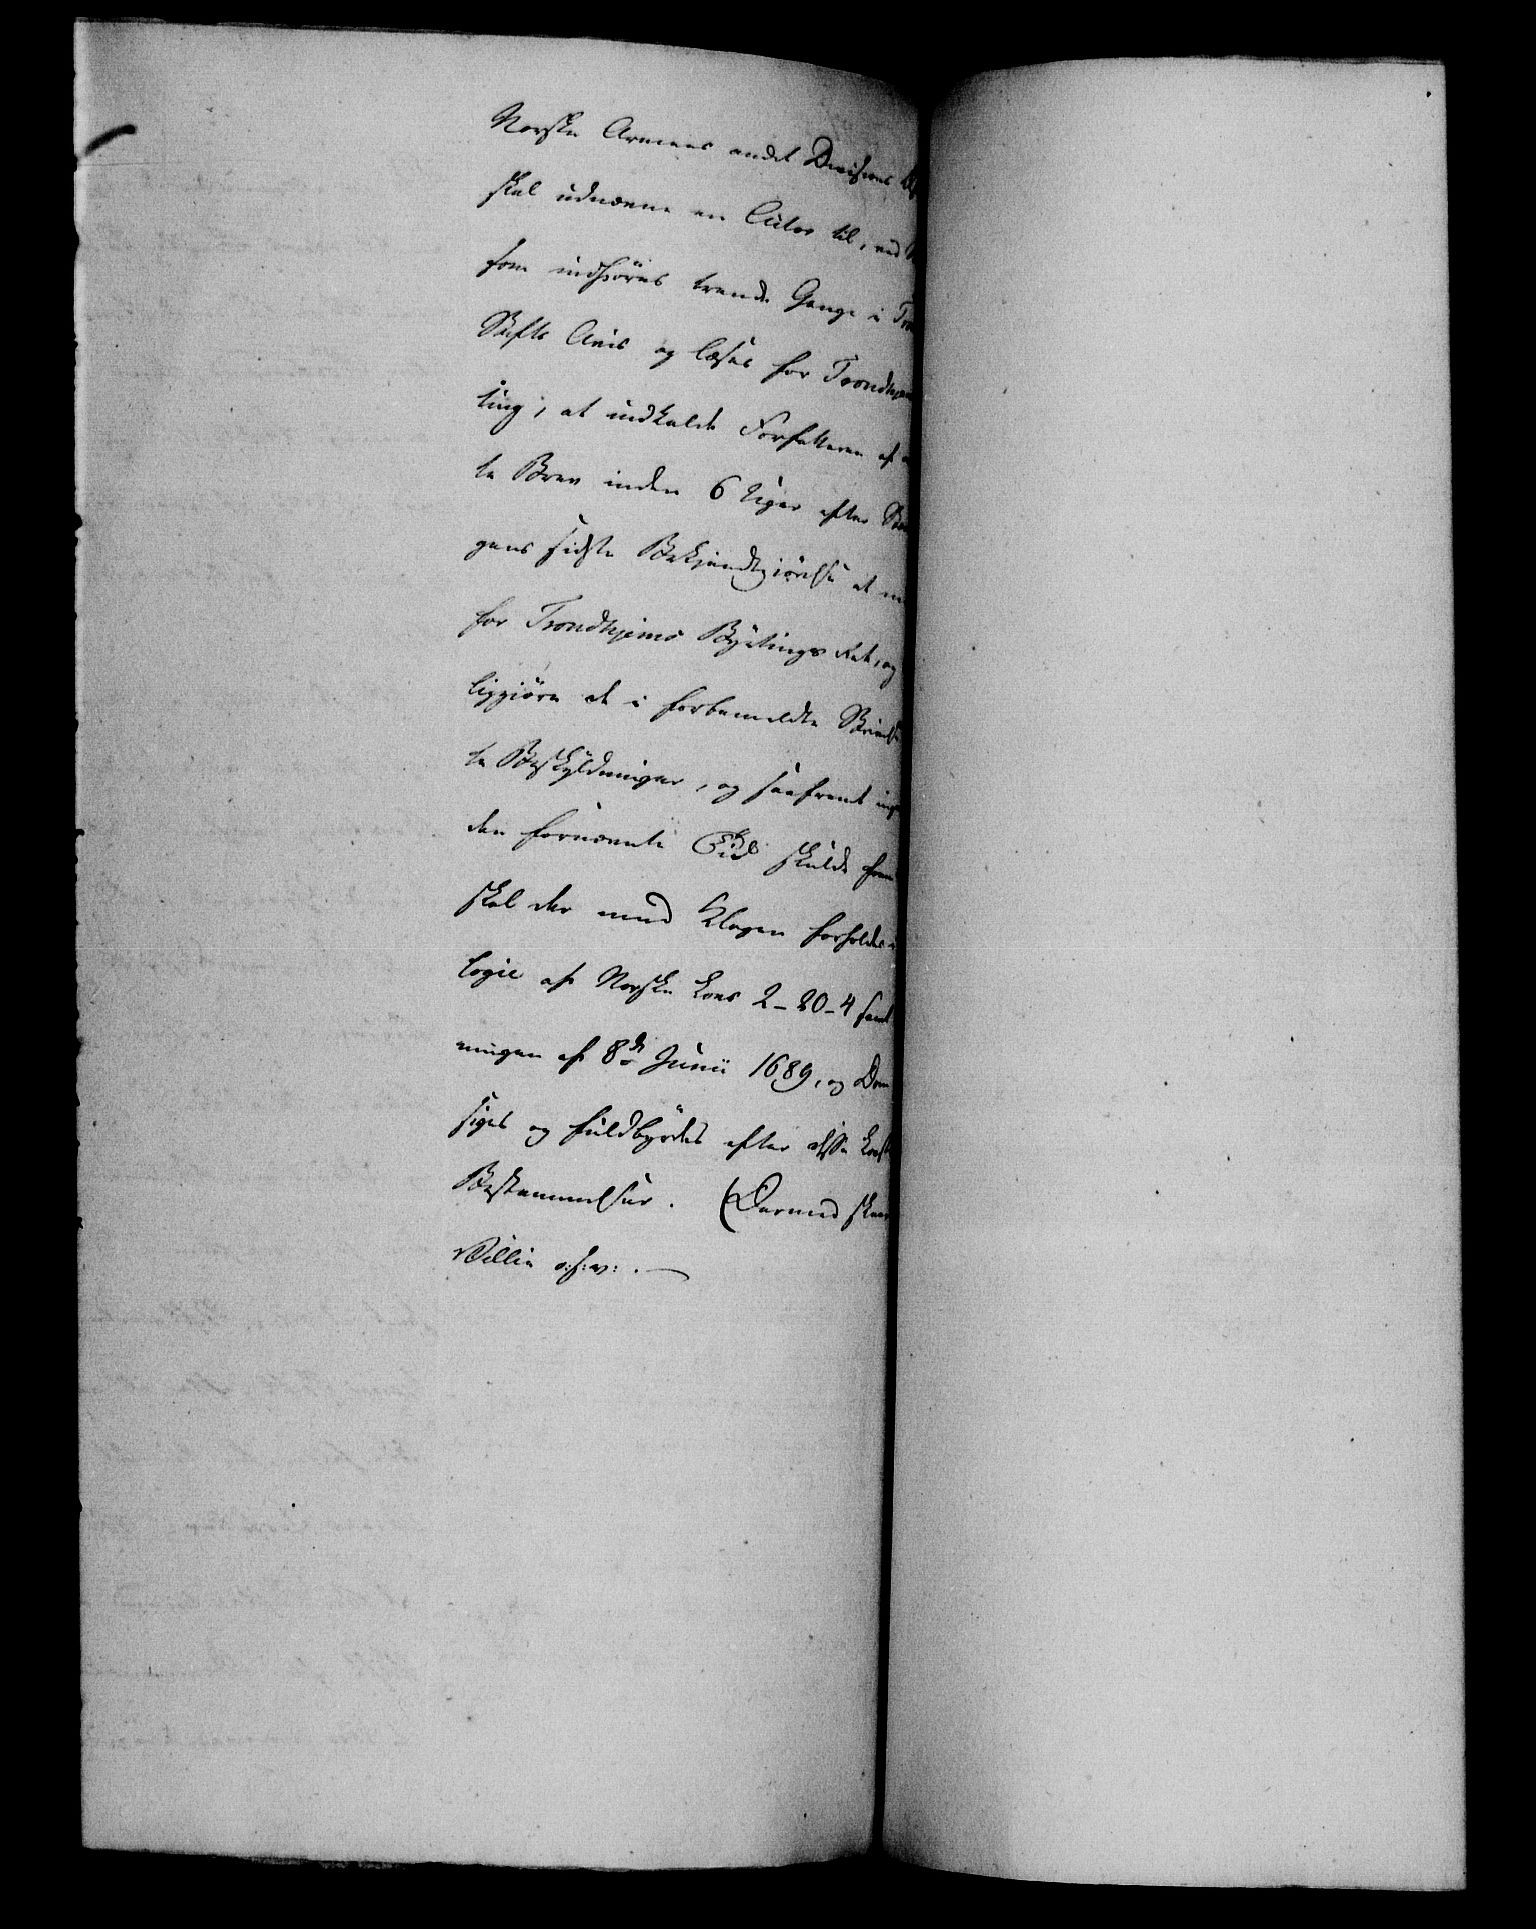 Norske Armees andet Divisions
skal udnævne en Actor til, ved
som indføres trende Gange i
Stifts Avis og læses for Trondhjems
ting, at indkalde Forfatteren af
te Brev inden 6 Uger efter
gens sidste Bekjendtgiørelse at
for Trondhjems Byetings Ret, og
liggiøre de i forbemeldte
te Beskyldninger, og saafremt
den fornævnte Tid skulde
skal der med Klagen forholdes
logie af Norske Lovs 2-20-4 samt
ningen af 8de Junii 1689, og Dom
siges og fuldbyrdes efter disse
Bestemmelser. (Dermed skeer
Villie o:s:v: .